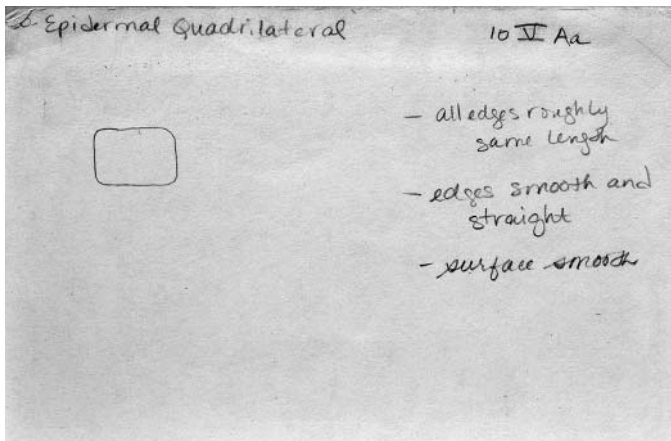 Epidermal Quadrilateral
10 V Aa
- all edges roughly
same length
- edges smooth and
straight
- surface smooth